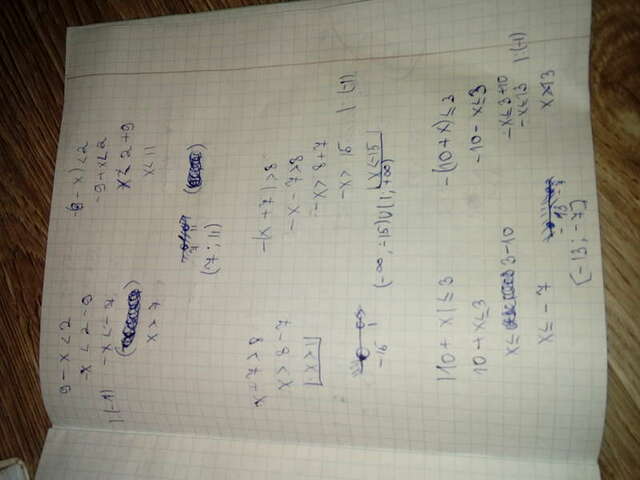 9 - x < 2
-x < 2 - 9
-x < -7 | (-1)
x > 7
-(9 - x) < 2
-9 + x < 2
x < 2 + 9
x < 11
(7; 11)
x + 7 > 8
x > 8 - 7
x > 1
-(x + 7) > 8
-x - 7 > 8
-x > 8 + 7
-x > 15 | (-1)
x < -15
(-∞; -15) ∪ (1; +∞)
|10 + x| ≤ 3
10 + x ≤ 3
x ≤ 3 - 10
x ≤ -7
-(10 + x) ≤ 3
-10 - x ≤ 3
-x ≤ 3 + 10
-x ≤ 13 | :(-1)
[-13; -7]